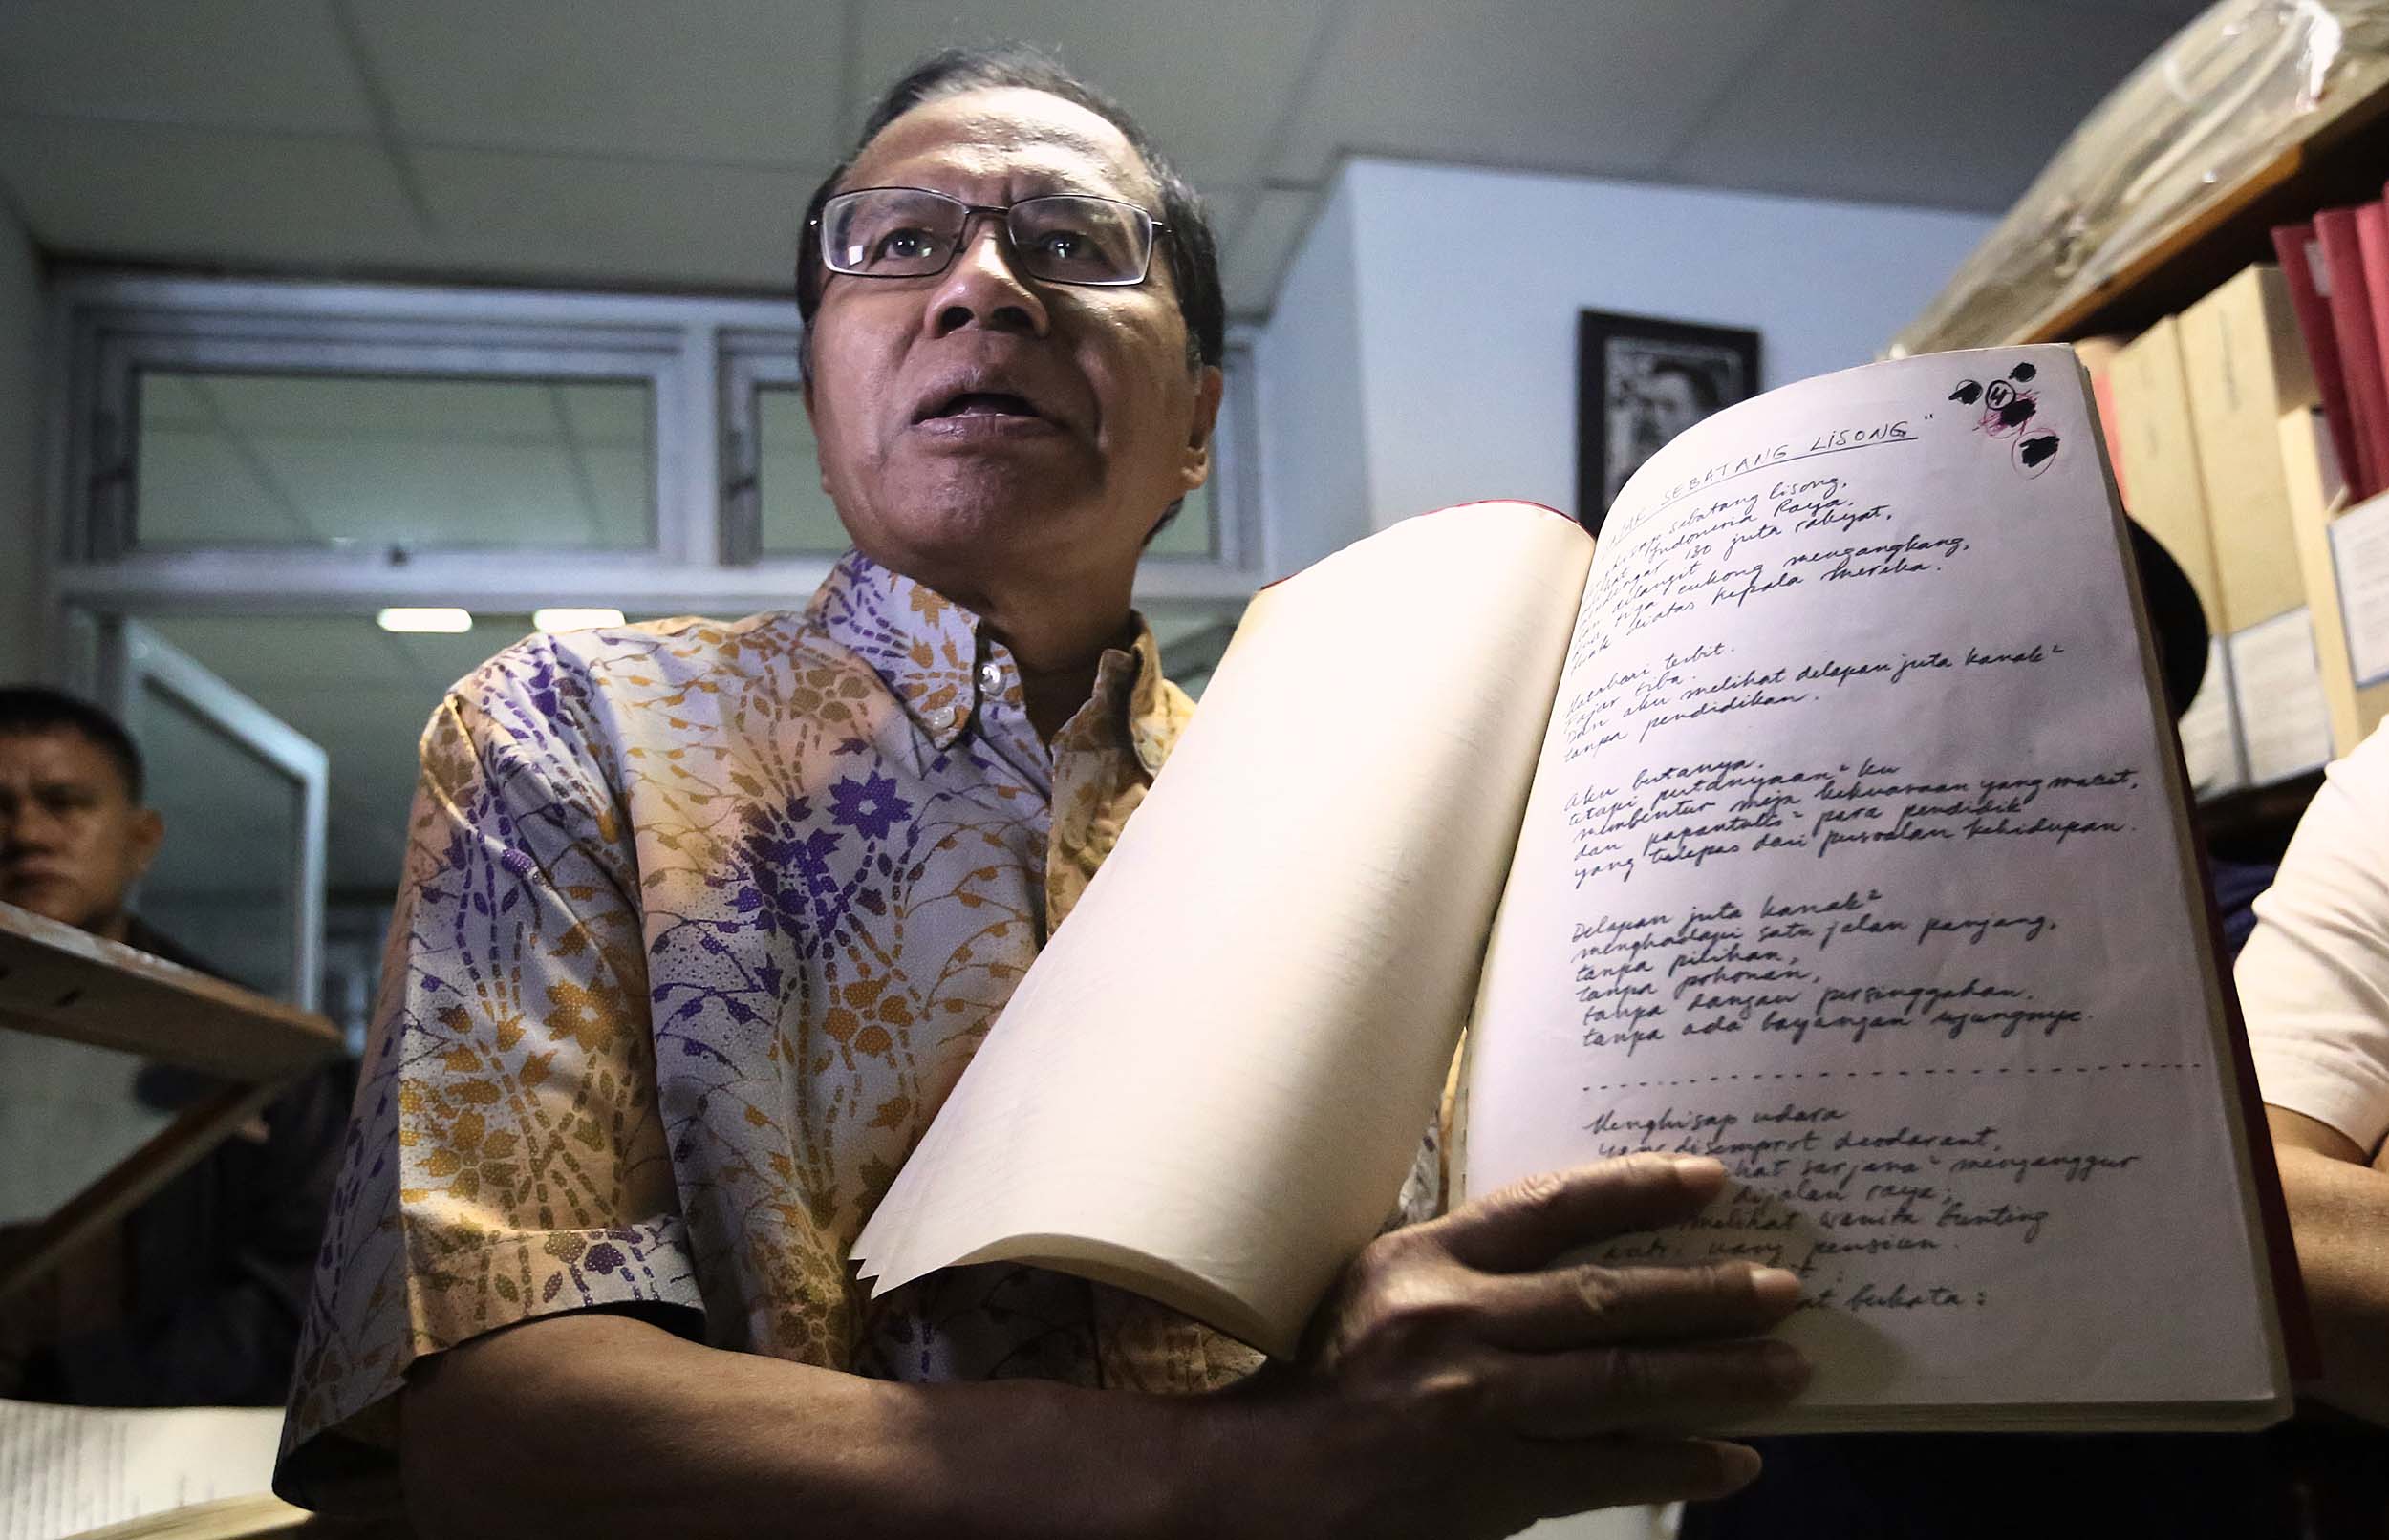 SEBATANG LISONG"
4
sebatang lisong,
Indonesia Raya,
130 juta rakyat,
dilangit
tiga cukong mengangkang,
diatas kepala mereka.
Matahari terbit.
Fajar tiba.
Dan aku melihat delapan juta kanak²
tanpa pendidikan.
Aku bertanya,
tetapi pertanyaan² ku
membentur meja kekuasaan yang macet,
dan papantulis² para pendidik
yang terlepas dari persoalan kehidupan.
Delapan juta kanak²
menghadapi satu jalan panjang,
tanpa pilihan,
tanpa pohonan,
tanpa dangau persinggahan,
tanpa ada bayangan ujungnya.
Menghisap udara
yang disemprot deodorant,
ihat sarjana² menganggur
dijalan raya;
melihat wanita bunting
antri uang pensiun.
at berkata: